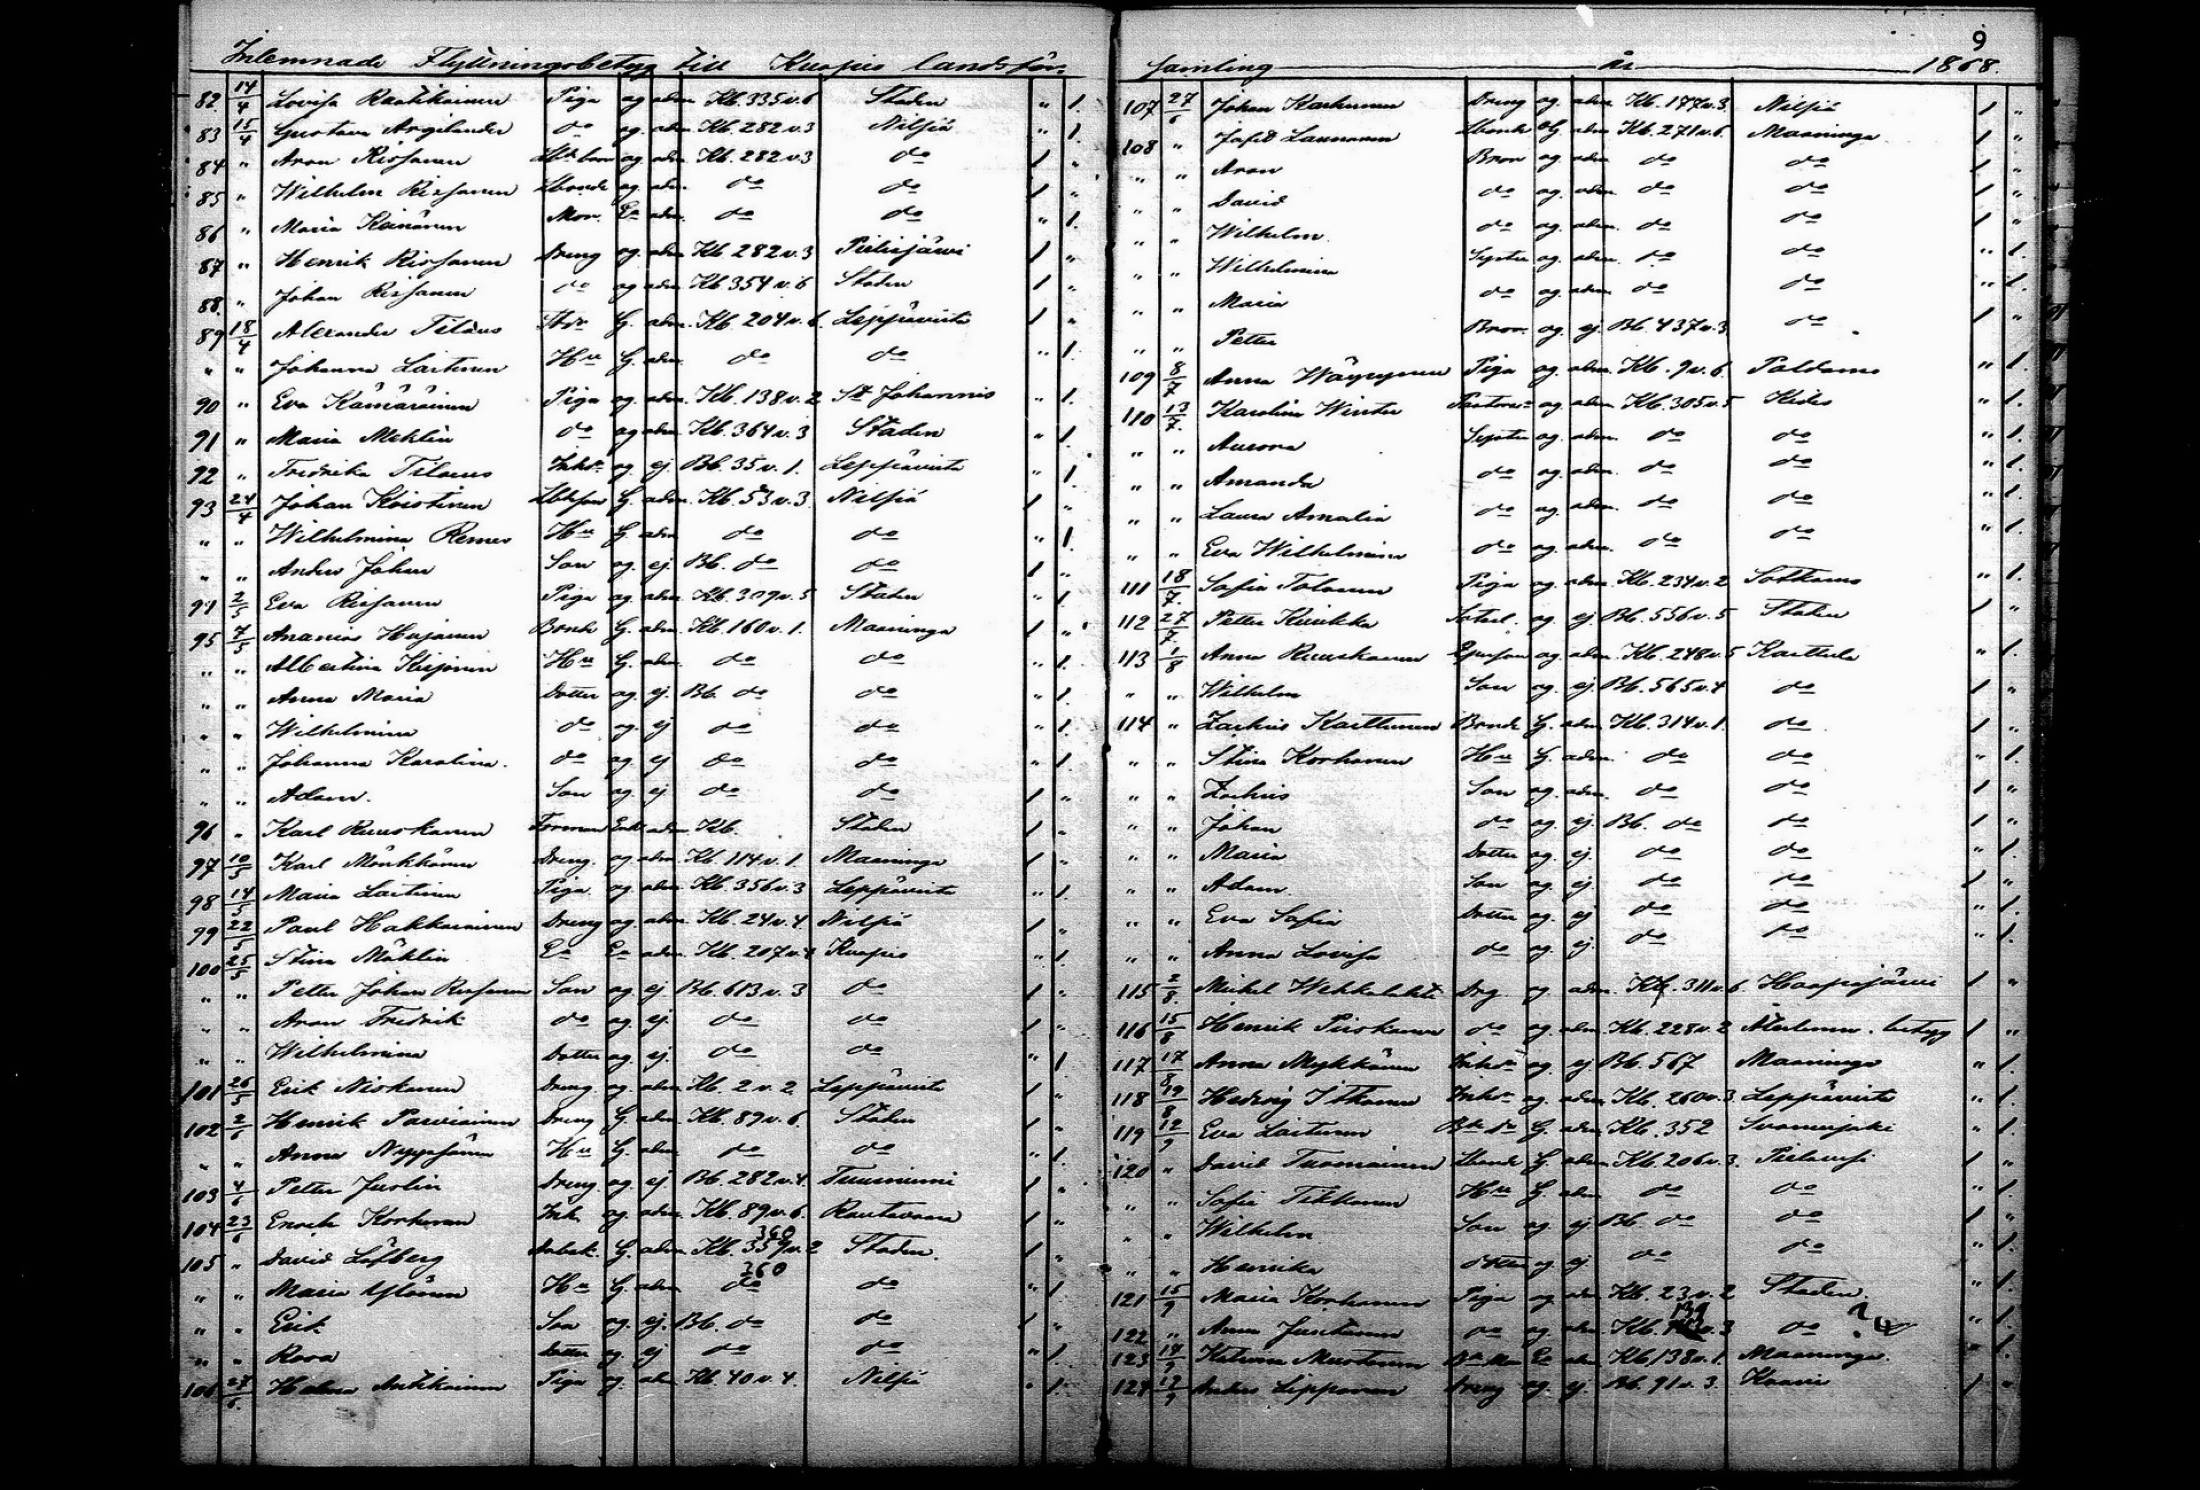 Inlemnade Flyttningsbetyg till Kuopio landsför-
82 14/4 Lovisa Raatikainen Piga og adm. Kb. 335 v. 6 Staden " 1.
83 15/4 Gustava Argilander do og adm. Kb. 282 v. 3 Nilsiä " 1.
84 " Aron Rissanen og adm. Kb. 282 v. 3 do 1 "
85 " Wilhelm Rissanen Lbonde og adm. do do 1 "
86 " Maria Keinänen Mor. Ea adm. do do " 1.
87 " Henrik Rissanen Dreng og adm. Kb. 282 v. 3 Pielisjärvi 1 "
88 " Johan Rissanen do og adm. Kb. 354 v. 6 Staden 1 "
89 18/4 Alexander Tilæus G. adm. Kb. 204 v. 6. Leppävirta 1 "
" " Johanna Laitinen Hu G. adm. do do " 1.
90 " Eva Kämäräinen Piga og adm. Kb. 138 v. 2 St Johannis " 1.
91 " Maria Meklin do og adm. Kb. 364 v. 3 Staden " 1.
92 " Fredrika Tilæus og. ej Bb. 35 v. 1. Leppävirta " 1.
93 24/4 Johan Koistinen G. adm. Kb. 53 v. 3 Nilsiä 1 "
" " Wilhelmina Remes Hu G. adm do do " 1.
" " Anders Johan Son og. ej Bb. do do 1 "
94 2/5 Eva Rissanen Piga og adm. Kb. 309 v. 5 Staden " 1.
95 7/5 Ananias Hujanen Bonde G. adm. Kb. 160 v. 1. Maaninga 1 "
" " Albertina Hujanen Hu G. adm. do do " 1.
" " Anna Maria Dotter og. ej Bb. do do " 1.
" " Wilhelmina do og. ej do do " 1.
" " Johanna Karolina. do og. ej do do " 1.
" " Adam. Son og. ej do do 1 "
96 " Karl Ruuskanen Forman Enkl. adm. Kb. Staden 1 "
97 10/5 Karl Mönkkönen Dreng. og adm. Kb. 114 v. 1. Maaninga 1 "
98 14/5 Maria Laitinen Piga og. adm. Kb. 356 v. 3 Leppävirta " 1.
99 22/5 Paul Hakkarainen Dreng og. adm. Kb. 24 v. 4 Nilsiä 1 "
100 25/5 Stina Mäklin Ea Ea adm. Kb. 207 v. 4 Kuopio " 1.
" " Petter Johan Rissanen Son og. ej Bb. 613 v. 3 do 1 "
" " Aron Fredrik do og. ej. do do 1 "
" " Wilhelmina Dotter og. ej. do do " 1.
101 26/5 Erik Niskanen Dreng. og. adm. Kb. 2 v. 2. Leppävirta 1 "
102 2/6 Henrik Parviainen Dreng G. adm. Kb. 89 v. 6. Staden 1 "
" " Anna Nyyssönen Hu G. adm. do do " 1.
103 4/6 Petter Juslin Dreng. og. ej Bb. 282 v. 4. Tuusniemi 1 "
104 23/6 Enoch Korhonen Inh. og. adm. Kb. 89 v. 6. Rautavaara 1 "
105 " David Löfberg G. adm. Kb. 359 v. 2 360 Staden. 1 "
" " Maria Ylönen Hu G. adm. do 360 do " 1.
" " Erik Son og. ej. Bb. do do 1 "
" " Rosa Dotter og. ej do do " 1.
106 27/6 Helena Antikainen Piga og. adm. Kb. 40 v. 4. Nilsiä " 1.
9
samling år 1868.
107 27/6 Johan Karhunen Dreng og. adm. Kb. 187 v. 3. Nilsiä 1 "
108 " Josef Launonen Lbonde og. adm. Kb. 271 v. 6. Maaninga 1 "
" " Aron Bror og. adm. do do 1 "
" " David do og. adm. do do 1 "
" " Wilhelm. do og. adm. do do 1 "
" " Wilhelmina Syster og. adm. do do " 1.
" " Maria do og. adm. do do " 1.
" " Petter Bror. og. ej Bb. 437 v. 3 do 1 "
109 8/7 Anna Wäyrynen Piga og. adm. Kb. 9 v. 6. Paldamo " 1.
110 13/7 Karolina Winter og. adm. Kb. 305 v. 5 Kides " 1.
" " Aurora Syster og. adm. do do " 1.
" " Amanda do og. adm. do do " 1.
" " Laura Amalia do og. adm. do do " 1.
" " Eva Wilhelmina do og. adm. do do " 1.
111 18/7 Sofia Tolonen Piga og. adm. Kb. 234 v. 2 Sotkamo " 1.
112 27/7 Petter Kuukka og. ej. Bb. 556 v. 5 Staden 1 "
113 1/8 Anna Ruuskanen og. adm. Kb. 248 v. 5 Karttula " 1.
" " Wilhelm Son og. ej. Bb. 565 v. 4 do 1 "
114 " Zachris Karttunen Bonde G. adm Kb. 314 v. 1. do 1 "
" " Stina Korhonen Hu G. adm. do do " 1.
" " Zachris Son og. adm. do do 1 "
" " Johan do og. ej. Bb. do do 1 "
" " Maria Dotter og. ej. do do " 1.
" " Adam. Son og. ej. do do 1 "
" " Eva Sofia Dotter og. ej do do " 1.
" " Anna Lovisa do og. ej. do do " 1.
115 2/8 Mickel Wehkalahti Drg. og. adm. Kb. 311 v. 6 Haapajärvi 1 "
116 15/8 Henrik Piiskanen do og. adm. Kb. 228 v. 2 Återlemn. betyg 1 "
117 17/8 Anna Mykkänen og. ej Bb. 567 Maaninga " 1.
118 19/8 Hedvig Itkonen og. adm. Kb. 260 v. 3. Leppävirta " 1.
119 12/9 Eva Laitinen G. adm Kb. 352 Suonenjoki " 1.
120 " David Tuomainen Lbonde G. adm. Kb. 206 v. 3. Pielavesi 1 "
" " Sofia Tikkanen Hu G. adm do do " 1.
" " Wilhelm Son og. ej Bb. do do 1 "
" " Henrika dotter og. ej. do do " 1.
121 15/9 Maria Korhonen Piga og adm. Kb. 23 v. 2 Staden. " 1.
122 " Anna do og. adm. Kb. 139 v. 3 do " 1.
123 17/9 Katrina Mustonen Ea adm Kb. 138 v. 1. Maaninga. " 1.
124 19/9 Anders Lipponen Dreng og. ej. Bb. 91 v. 3. Kaavi 1 "